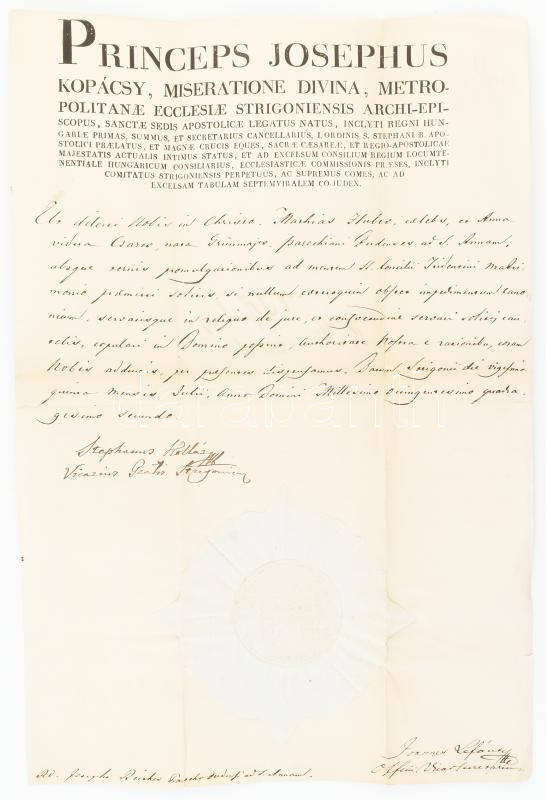 PRINCEPS JOSEPHUS
KOPÁCSY, MISERATIONE DIVINA, METRO-
POLITANÆ ECCLESIÆ STRIGONIENSIS ARCHI-EPI-
SCOPUS, SANCTÆ SEDIS APOSTOLICÆ LEGATUS NATUS, INCLYTI REGNI HUN-
GARIÆ PRIMAS, SUMMUS, ET SECRETARIUS CANCELLARIUS, I. ORDINIS S. STEPHANI R. APO-
STOLICI PRÆLATUS, ET MAGNÆ CRUCIS EQUES, SACRÆ CÆSAREÆ, ET REGIO-APOSTOLICAE
MAJESTATIS ACTUALIS INTIMUS STATUS, ET AD EXCELSUM CONSILIUM REGIUM LOCUMTE-
NENTIALE HUNGARICUM CONSILIARIUS, ECCLESIASTICÆ COMMISSIONIS PRÆSES, INCLYTI
COMITATUS STRIGONIENSIS PERPETUUS, AC SUPREMUS COMES, AC AD
EXCELSAM TABULAM SEPTEMVIRALEM CO-JUDEX.
Ut dilecti Nobis in Christo. Mathias Huber, cælebs, et Anna
vidua nata parochiani Budenses ad S. Annam,
absque ternis promulgationibus ad mentem S. Concilii Tridentini Matri-
monio præmitti solitis, si nullum canoni-
cum, servatisque in reliquo de jure, et consvetudine servari solitis cau-
telis, copulari in Domino possint, Authoritate Nostra e rationibus, coram
Nobis adductis, per præsentes dispensamus. Datum Strigonii die vigesima
quinta mensis Julii, Anno Domini Millesimo Octingentesimo quadra-
gesimo secundo.
Stephanus Kollár
Vicarius Gralis Strigonien
darabanth
Joannes
Officii Vicar
Ad. Josepho Parocho Budensi ad S. Annam.